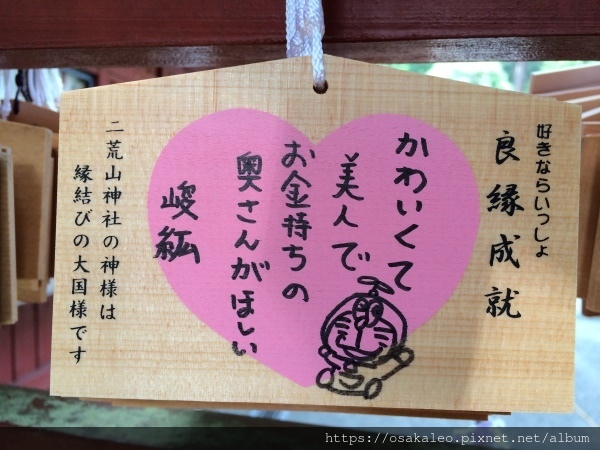 好きならいっしょ
良縁成就
かわいくて
美人で
お金持ちの
奥さんがほしい
峻紘
二荒山神社の神様は
縁結びの大国様です
https://osakaleo.pixnet.net/album